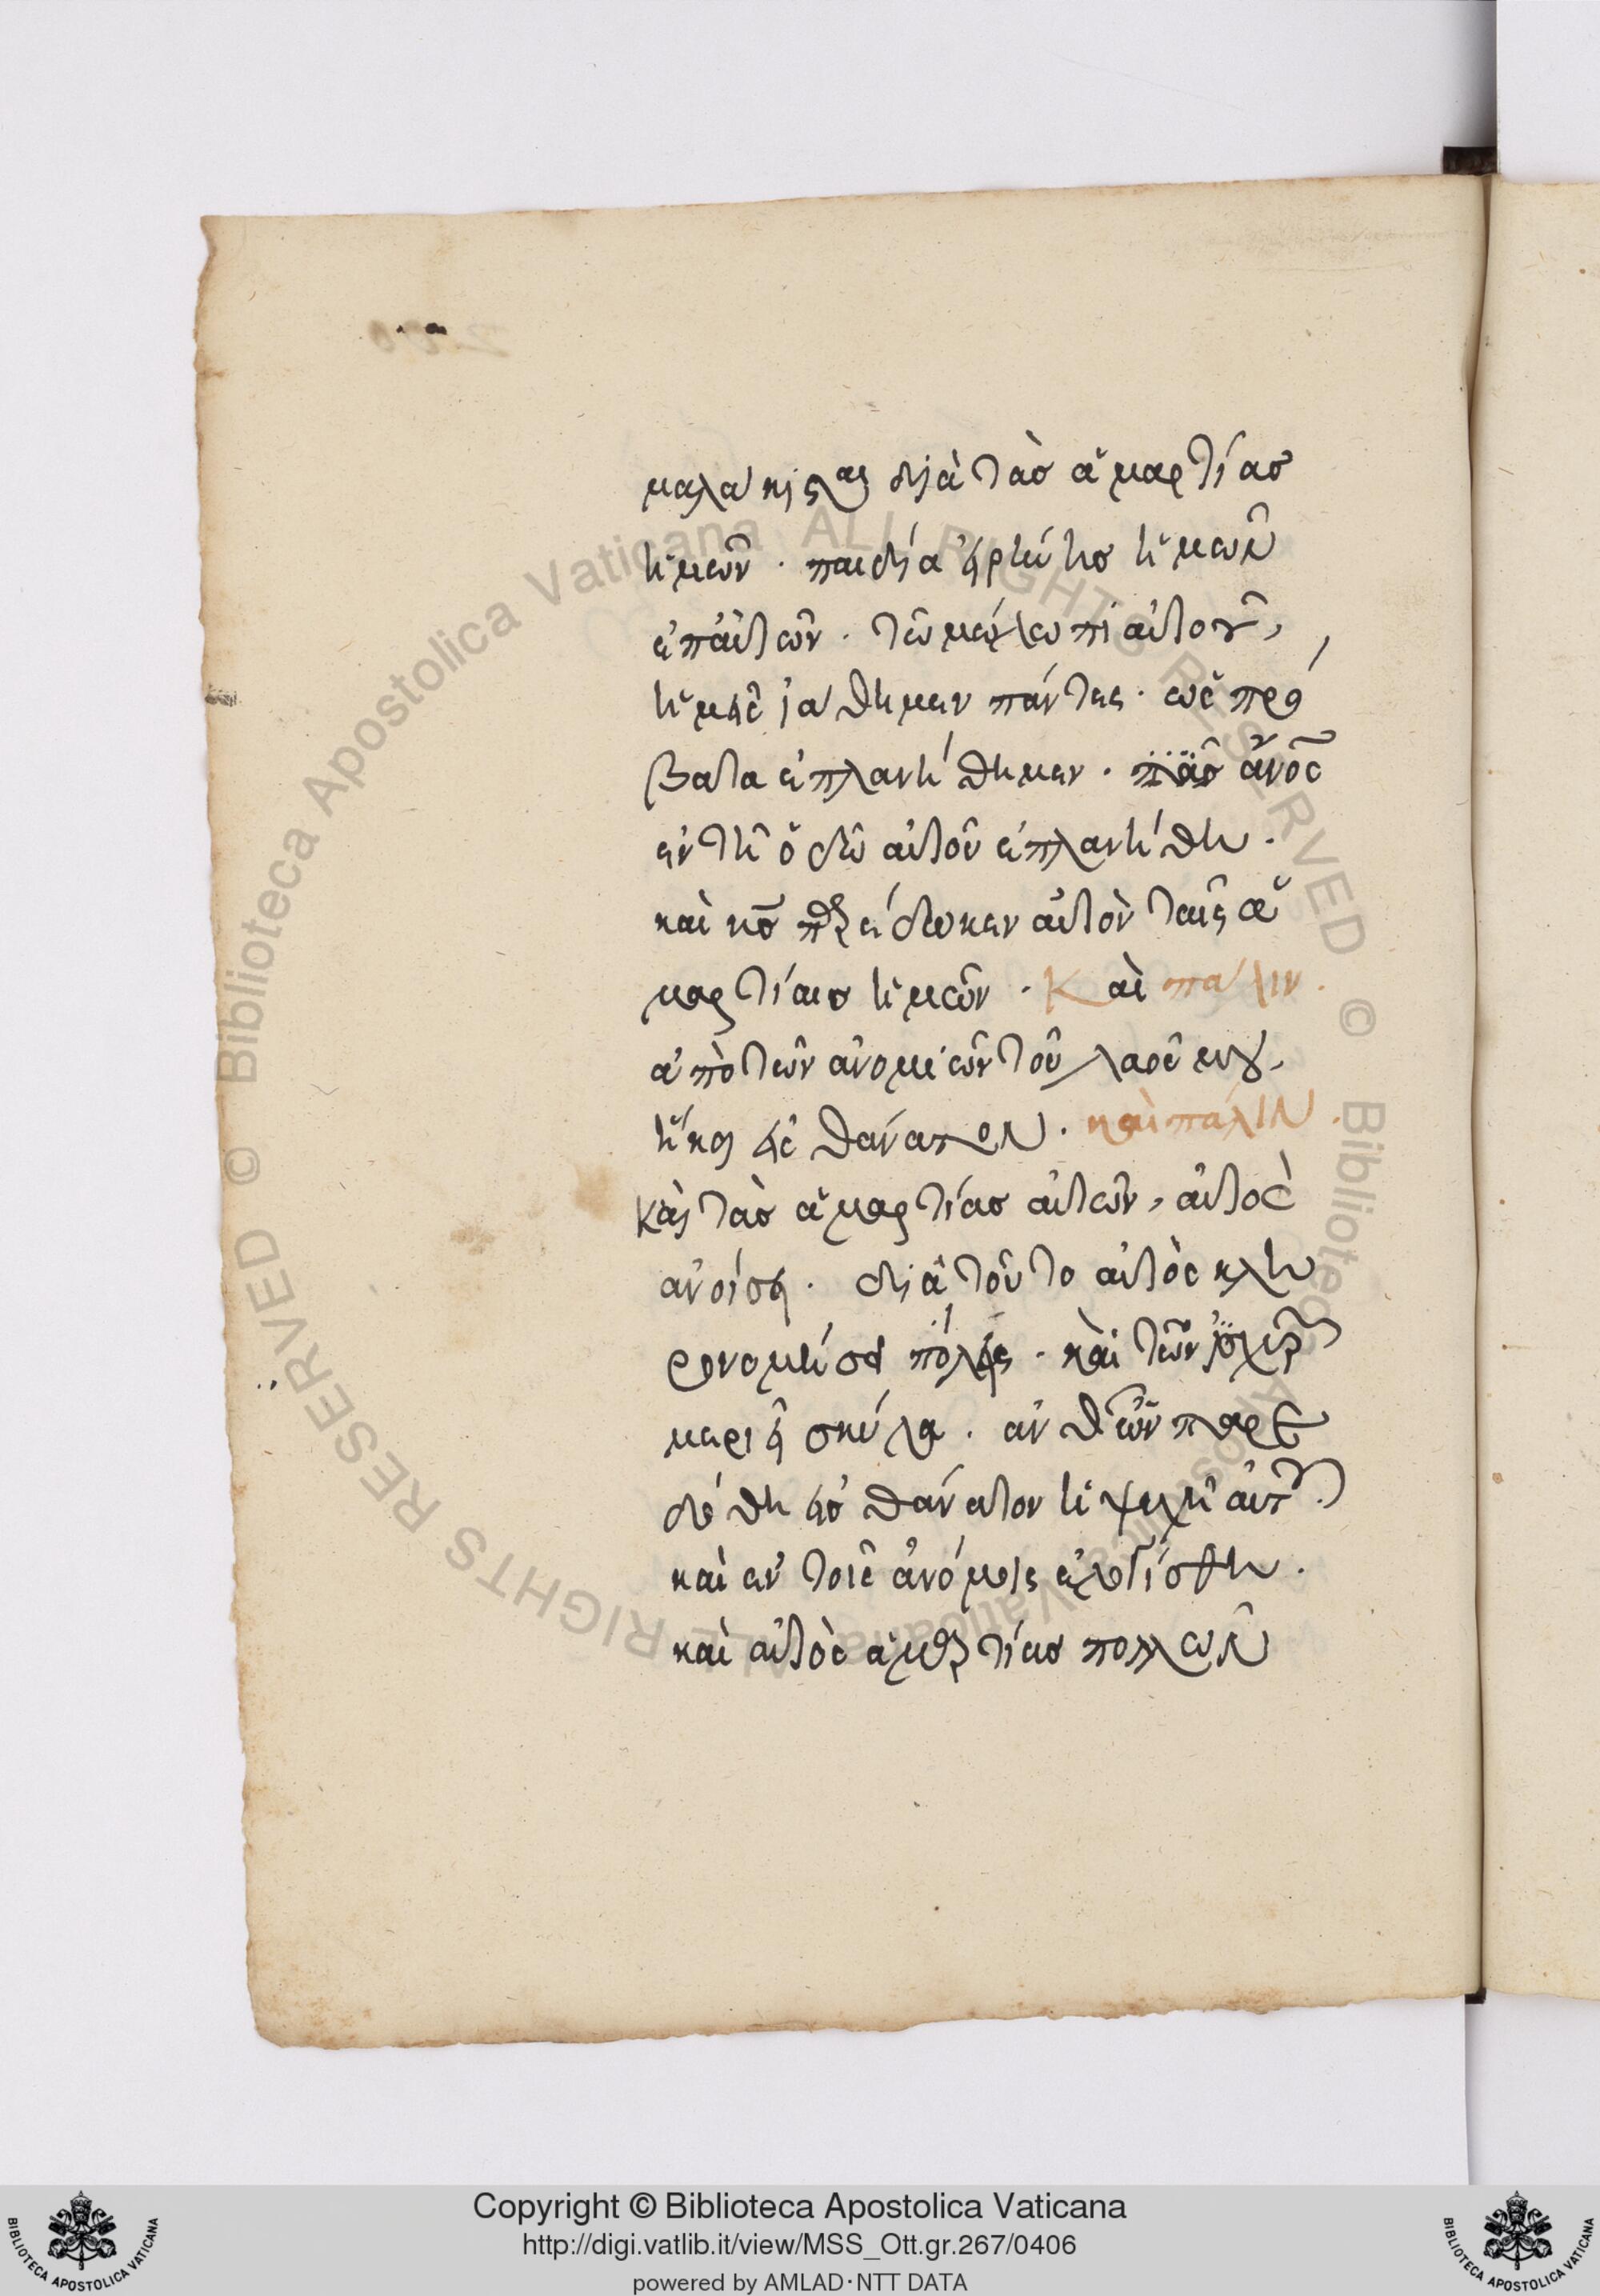 μαλάκισται διὰ τὰσ ἁμαρτίασ
ἡμῶν · παιδία εἰρήνησ ἡμῶν
ἐπ' αὐτῶν · τῶ μώλωπι αὐτοῦ,
ἡμεῖς ἰάθημεν πάντες · ὡς πρό
βατα ἐπλανήθημεν · ἂνος
ἐν τῆ ὁδῶ αὐτοῦ ἐπλανήθη ·
καὶ κσ παρέδωκεν αὐτὸν ταῖς ἁ
μαρτίαισ ἡμῶν · Καὶ πάλιν ·
ἀπὸ τῶν ἀνομιῶν τοῦ λαοῦ μου,
ἥκει εἰς θάνατον · καὶ πάλιν ·
Καὶ τὰσ ἁμαρτίασ αὐτῶν, αὐτὸς
ἀνοίσει · διὰ τοῦτο αὐτὸς κλη
ρονομήσει · καὶ τῶν
μεριεῖ σκύλα · ἀνθ' ὧν παρε
δόθη εἰσ θάνατον ἡ ψυχὴ αὐτοῦ ·
καὶ ἐν τοῖς ἀνόμοις ἐλογίσθη ·
καὶ αὐτὸς ἁμαρτίασ πολλῶν
Copyright © Biblioteca Apostolica Vaticana
http://digi.vatlib.it/view/MSS_Ott.gr.267/0406
powered by AMLAD·NTT DATA
BIBLIOTECA APOSTOLICA VATICANA
BIBLIOTECA APOSTOLICA VATICANA
© Biblioteca Apostolica Vaticana ALL RIGHTS RESERVED © Biblioteca Apostolica Vaticana ALL RIGHTS RESERVED